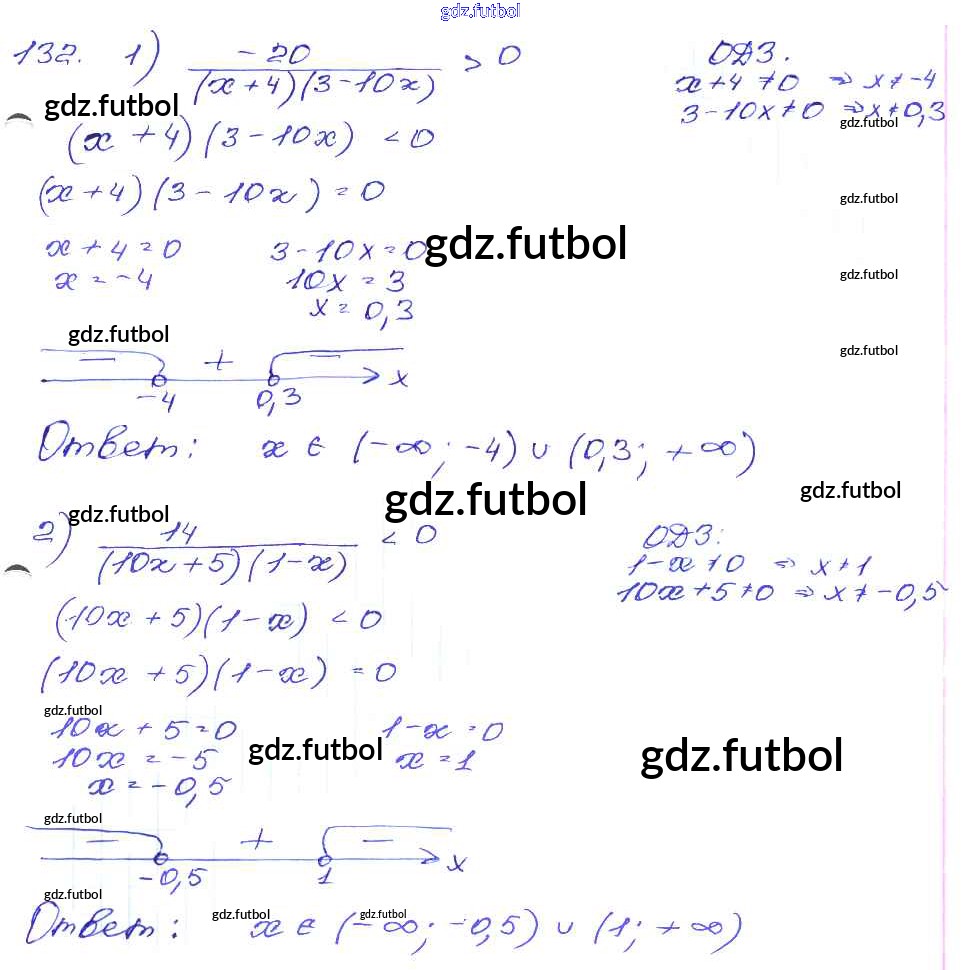 gdz.futbol
132. 1) -20 / (x+4)(3-10x) > 0 ОДЗ.
x+4 ≠ 0 ⇒ x ≠ -4
gdz.futbol
3-10x ≠ 0 ⇒ x ≠ 0,3
gdz.futbol
(x+4)(3-10x) < 0
(x+4)(3-10x) = 0
gdz.futbol
x+4=0 3-10x=0 gdz.futbol
x = -4 10x = 3
gdz.futbol
x = 0,3
gdz.futbol
gdz.futbol
− + −
-4 0,3 x
Ответ: x ∈ (-∞; -4) ∪ (0,3; +∞)
gdz.futbol gdz.futbol
gdz.futbol
2) 14 / (10x+5)(1-x) < 0 ОДЗ:
1-x ≠ 0 ⇒ x ≠ 1
10x+5 ≠ 0 ⇒ x ≠ -0,5
(10x+5)(1-x) < 0
(10x+5)(1-x) = 0
gdz.futbol
10x+5=0 1-x=0
10x = -5 gdz.futbol x = 1 gdz.futbol
x = -0,5
gdz.futbol
− + −
-0,5 1 x
gdz.futbol
gdz.futbol gdz.futbol
Ответ: x ∈ (-∞; -0,5) ∪ (1; +∞)